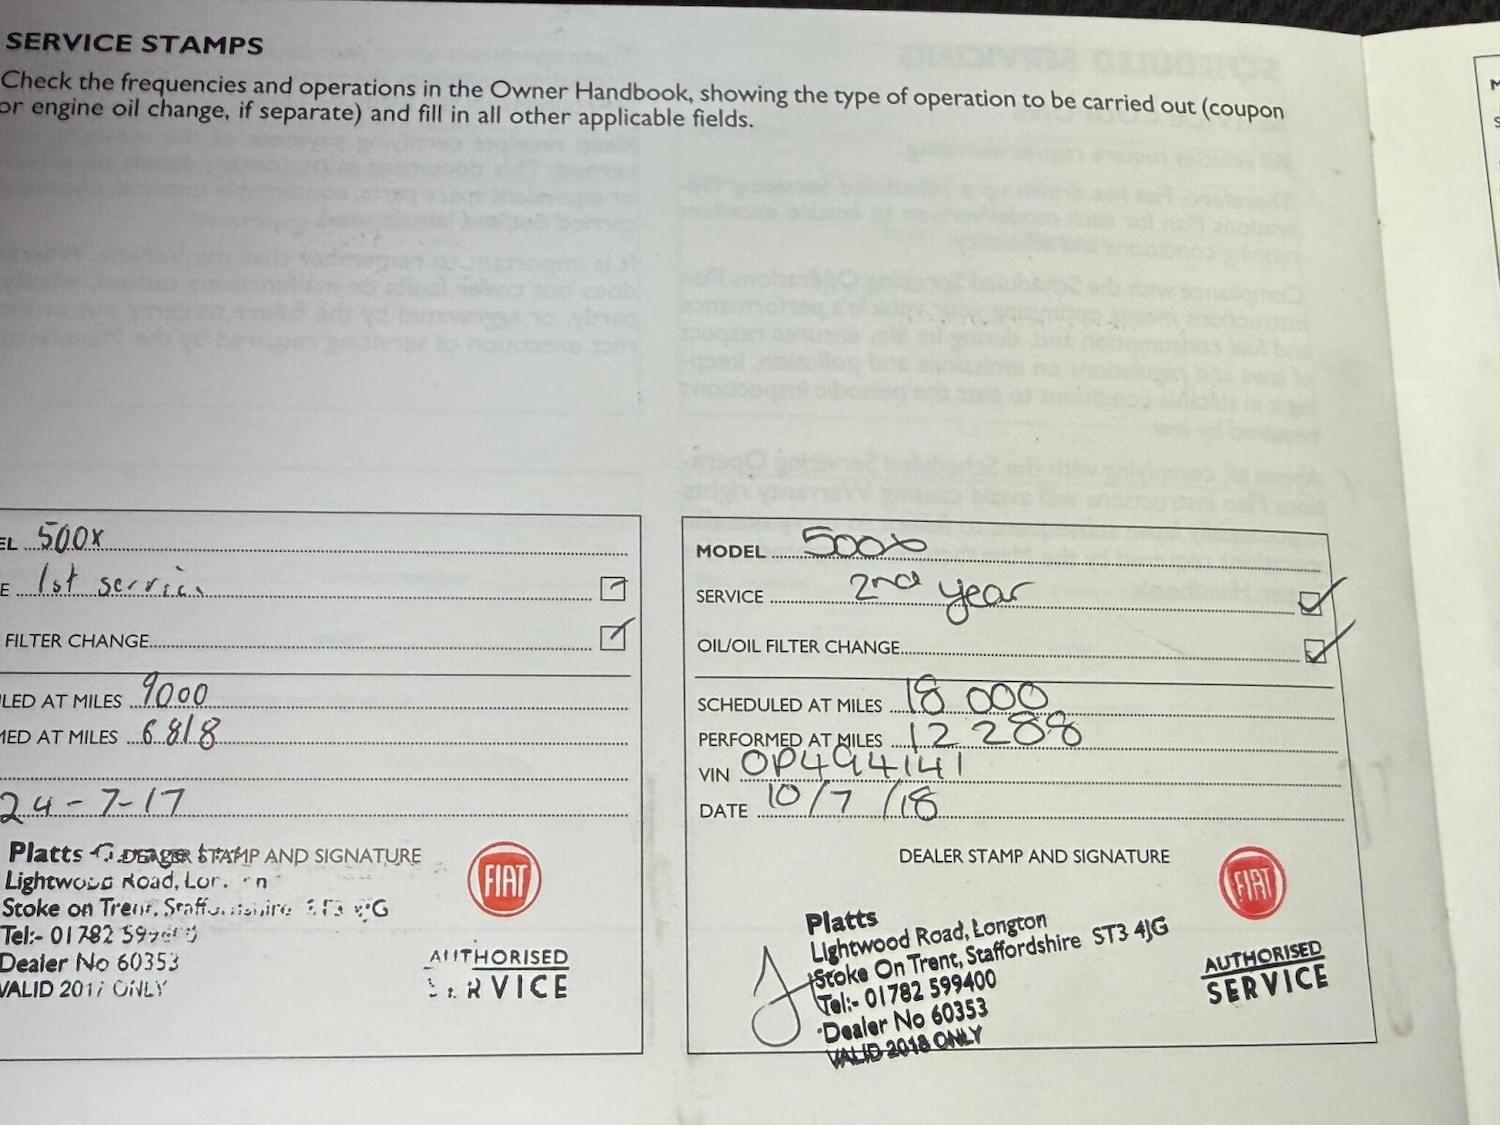 SERVICE STAMPS
Check the frequencies and operations in the Owner Handbook, showing the type of operation to be carried out (coupon
or engine oil change, if separate) and fill in all other applicable fields.
EL 500x
E 1st service
FILTER CHANGE
LED AT MILES 9000
MED AT MILES 6818
24-7-17
DEALER STAMP AND SIGNATURE
Platts
Lightwood Road,
Stoke on Trent,
Tel:- 01782
Dealer No 60353
VALID 2017 ONLY
FIAT
AUTHORISED
SERVICE
MODEL 500x
SERVICE 2nd year
OIL/OIL FILTER CHANGE
SCHEDULED AT MILES 18 000
PERFORMED AT MILES 12 288
VIN OP494141
DATE 10/7/18
DEALER STAMP AND SIGNATURE
Platts
Lightwood Road, Longton
Stoke On Trent, Staffordshire ST3 4JG
Tel:- 01782 599400
Dealer No 60353
VALID 2018 ONLY
FIAT
AUTHORISED
SERVICE